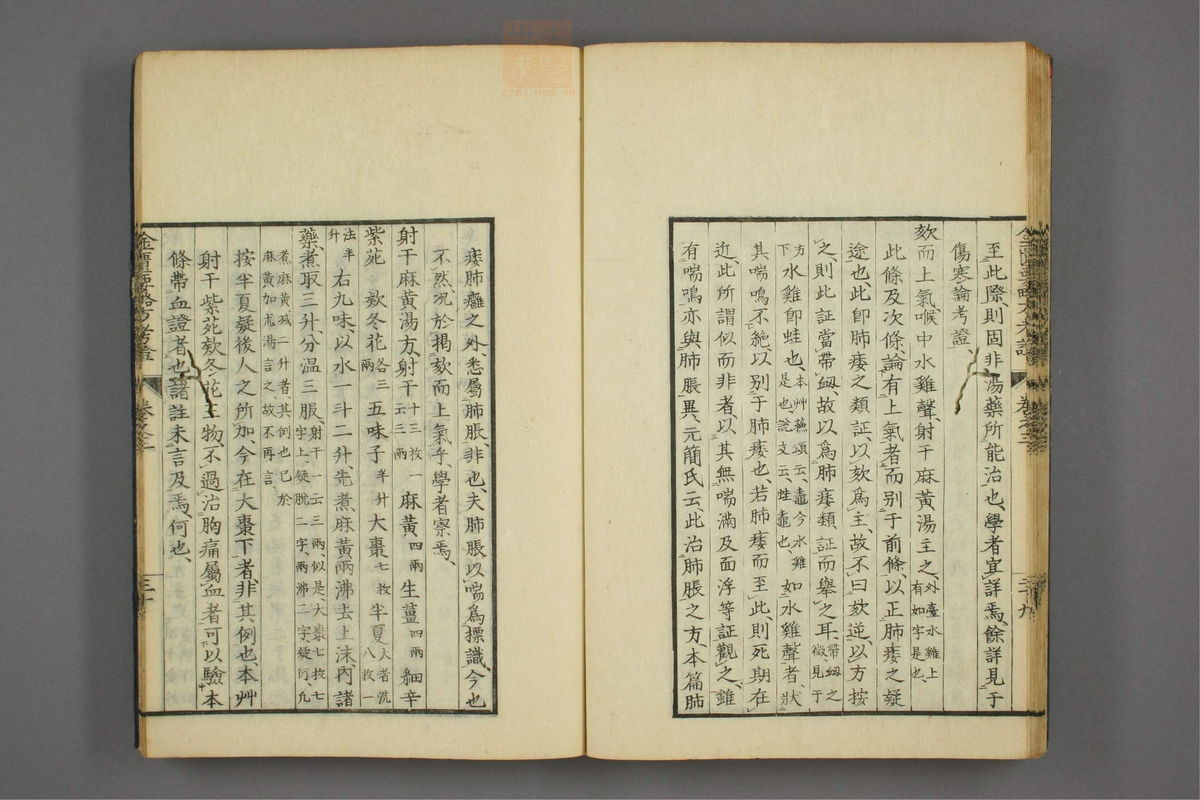 至此際則固非湯藥所能治也、學者宜詳焉、餘詳見于
傷寒論考證、
欬而上氣、喉中水雞聲、射干麻黃湯主之、外臺水雞上有如字是也、
此條及次條、論有上氣者、而別于前條、以正肺痿之疑
途也、此卽肺痿之類証、以欬爲主、故不曰欬逆、以方按
之、則此証當帶衄、故以爲肺痿類証而舉之耳、帶衄之徵見于
方下水雞卽蛙也、本艸蘇頌云、鼃今水雞是也、說文云、蛙鼃也、如水雞聲者、狀
其喘鳴不絶、以別于肺痿也、若肺痿而至此、則死期在
近、此所謂似而非者、以其無喘滿及面浮等証觀之、雖
有喘鳴、亦與肺脹異、元簡氏云、此治肺脹之方、本篇肺
金匱要略方考證 三十九
痿肺癰之外、悉屬肺脹、非也、夫肺脹以喘爲標識、今也
不然、況於揭欬而上氣乎、學者察焉、
射干麻黃湯方、射干十三枚一云三兩 麻黃四兩 生薑四兩 細辛
紫苑 欵冬花各三兩 五味子半升 大棗七枚 半夏大者洗八枚一
法半升 右九味、以水一斗二升、先煮麻黃兩沸、去上沫、內諸
藥、煮取三升、分溫三服、射干一云三兩、似是、大棗七枚七字上、疑脫二字、兩沸二字疑衍、凡
煮麻黃減二升者、其例也、已於麻黃加朮湯言之、故不再言、
按半夏疑後人之所加、今在大棗下者、非其例也、本艸
射干紫苑欵冬花三物、不過治胸痛屬血者、可以驗本
條帶血證者也、諸註未言及焉、何也、
金匱要略方考證